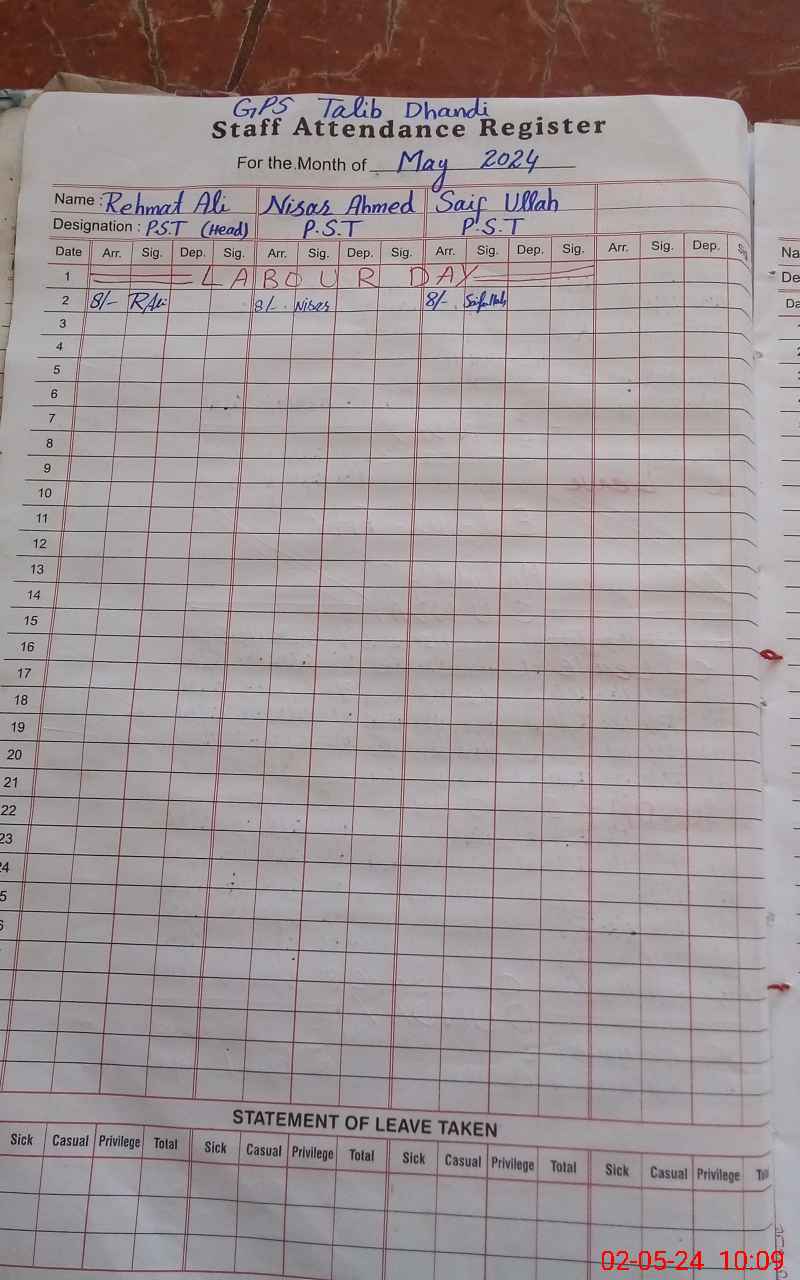 GPS Talib Dhandi
Staff Attendance Register
For the Month of May 2024
Name : Rehmat Ali Nisar Ahmed Saif Ullah
Designation : P.S.T (Head) P.S.T P.S.T
Date Arr. Sig. Dep. Sig. Arr. Sig. Dep. Sig. Arr. Sig. Dep. Sig. Arr. Sig. Dep.
1 LABOUR DAY
2 8/- R.Ali 8/- Nisar 8/- Saifullah
3
4
5
6
7
8
9
10
11
12
13
14
15
16
17
18
19
20
21
22
23
STATEMENT OF LEAVE TAKEN
Sick Casual Privilege Total Sick Casual Privilege Total Sick Casual Privilege Total Sick Casual Privilege
02-05-24 10:09